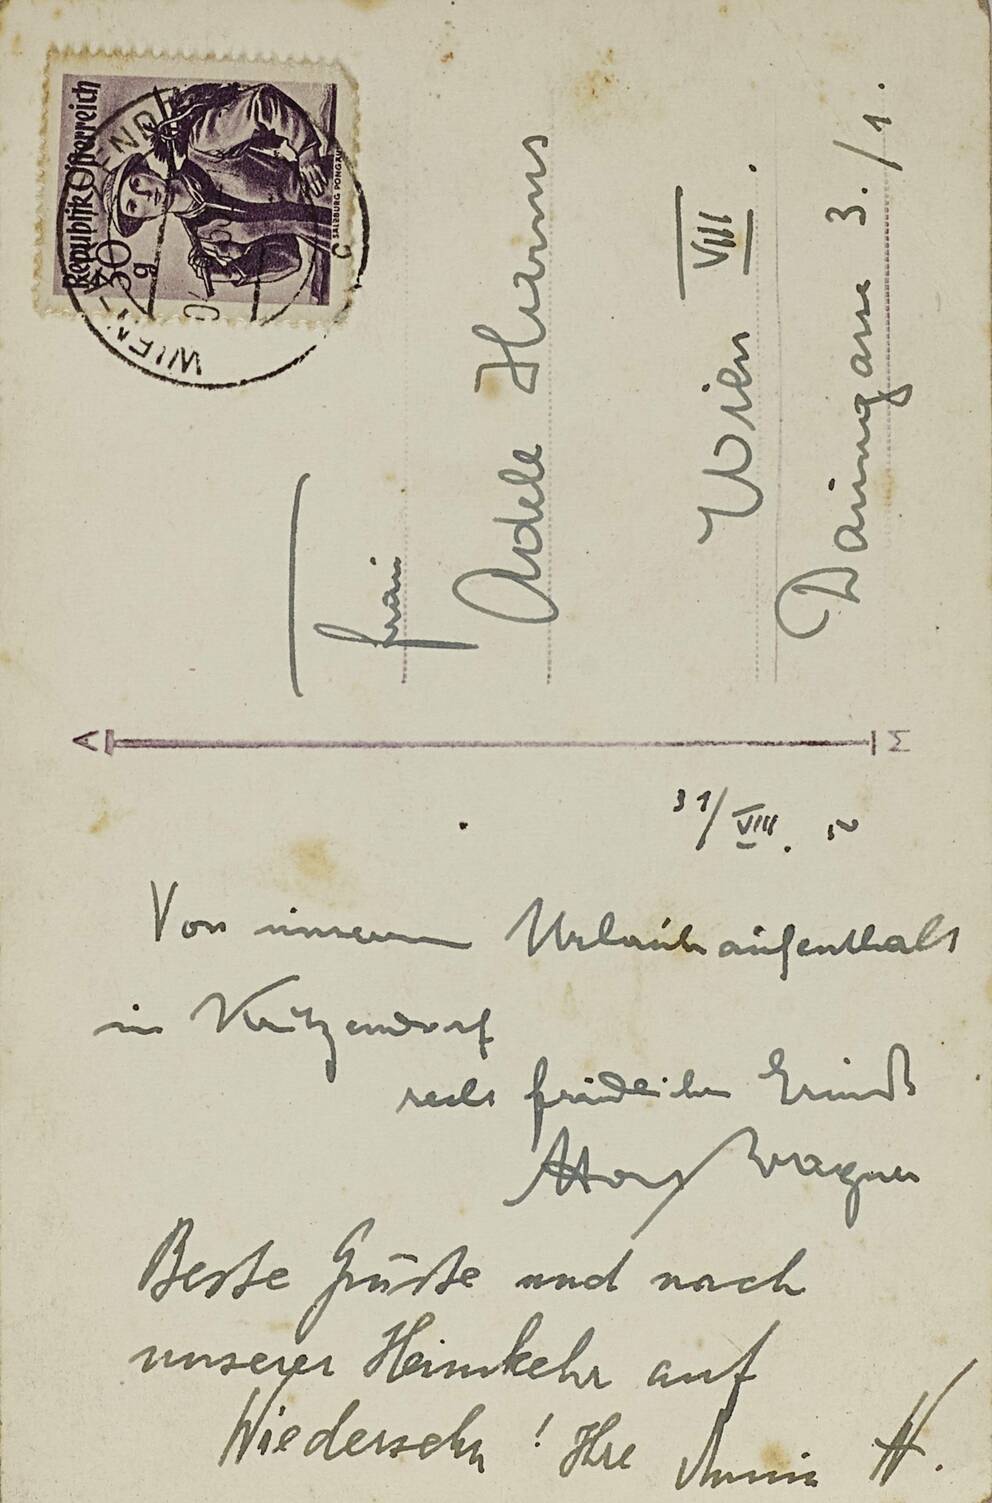 Republik Österreich
30 g
SALZBURG PONGAU
WIEN
Frau
Adele Hanns
Wien VIII.
Daungasse 3./1.
A M
31/VIII.
Von unserem Urlaubaufenthalt
in Kritzendorf
recht freundlichen
Wagner
Beste Grüße und nach
unserer Heimkehr auf
Wiedersehn! Ihre